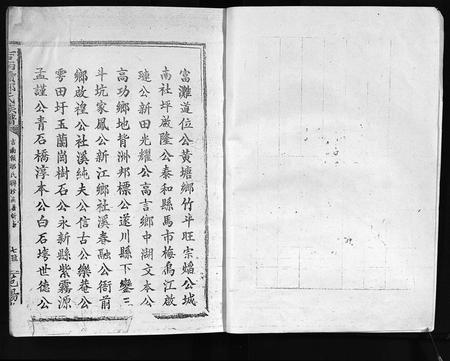 富灘道位公黃塘鄉竹斗旺宗蟠公城
南社坪啟隆公泰和縣馬市梅烏江啟
璉公新田光耀公高吉鄉中湖文本公
高功鄉地背洲邦標公遂川縣下
斗坑家鳳公新江鄉社溪春融公衙前
鄉啟徨公社溪純夫公信古公樂菴公
雩田圩玉蘭崗樹石公永新縣紫霧源
孟謹公青石橋淳本公白石壕世德公